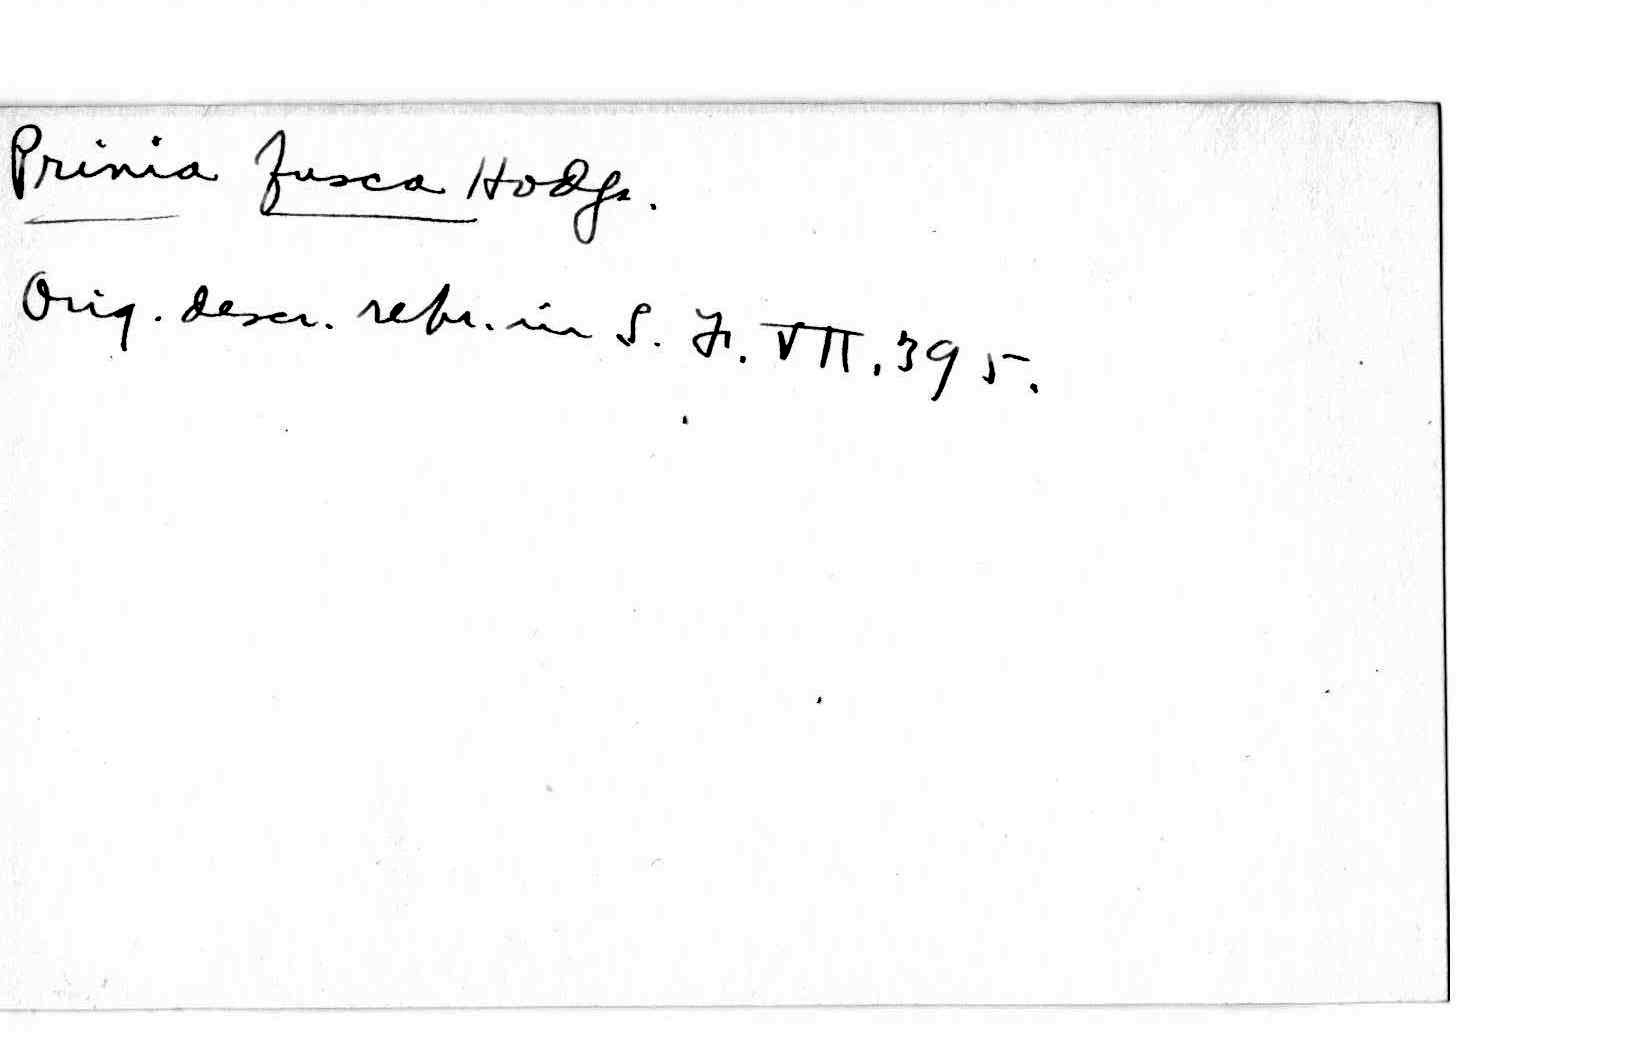 Prinia fusca Hodgs.
Orig. descr. repr. in S. F. VII. 395.